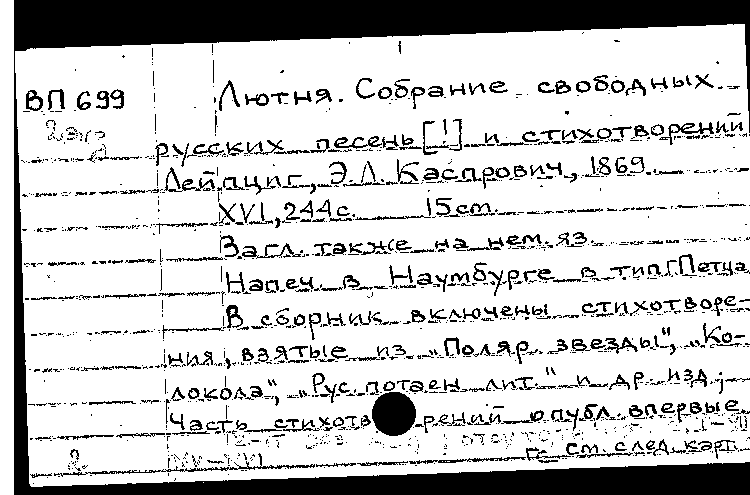 ВП 699
2 экз
Лютня. Собрание свободных
русских песень [!] и стихотворений
Лейпциг, Э.Л. Каспрович, 1869.
XVI, 244 с. 15 cm.
Загл. также на нем. яз.
Напеч. в Наумбурге в тип. Г. Петца
В сборник включены стихотворе-
ния, взятые из "Поляр. звезды", "Ко-
локола", "Рус. потаен. лит." и др. изд.;
Часть стихотворений опубл. впервые.
2-й экз
2 XV-XVI см. след. карт.